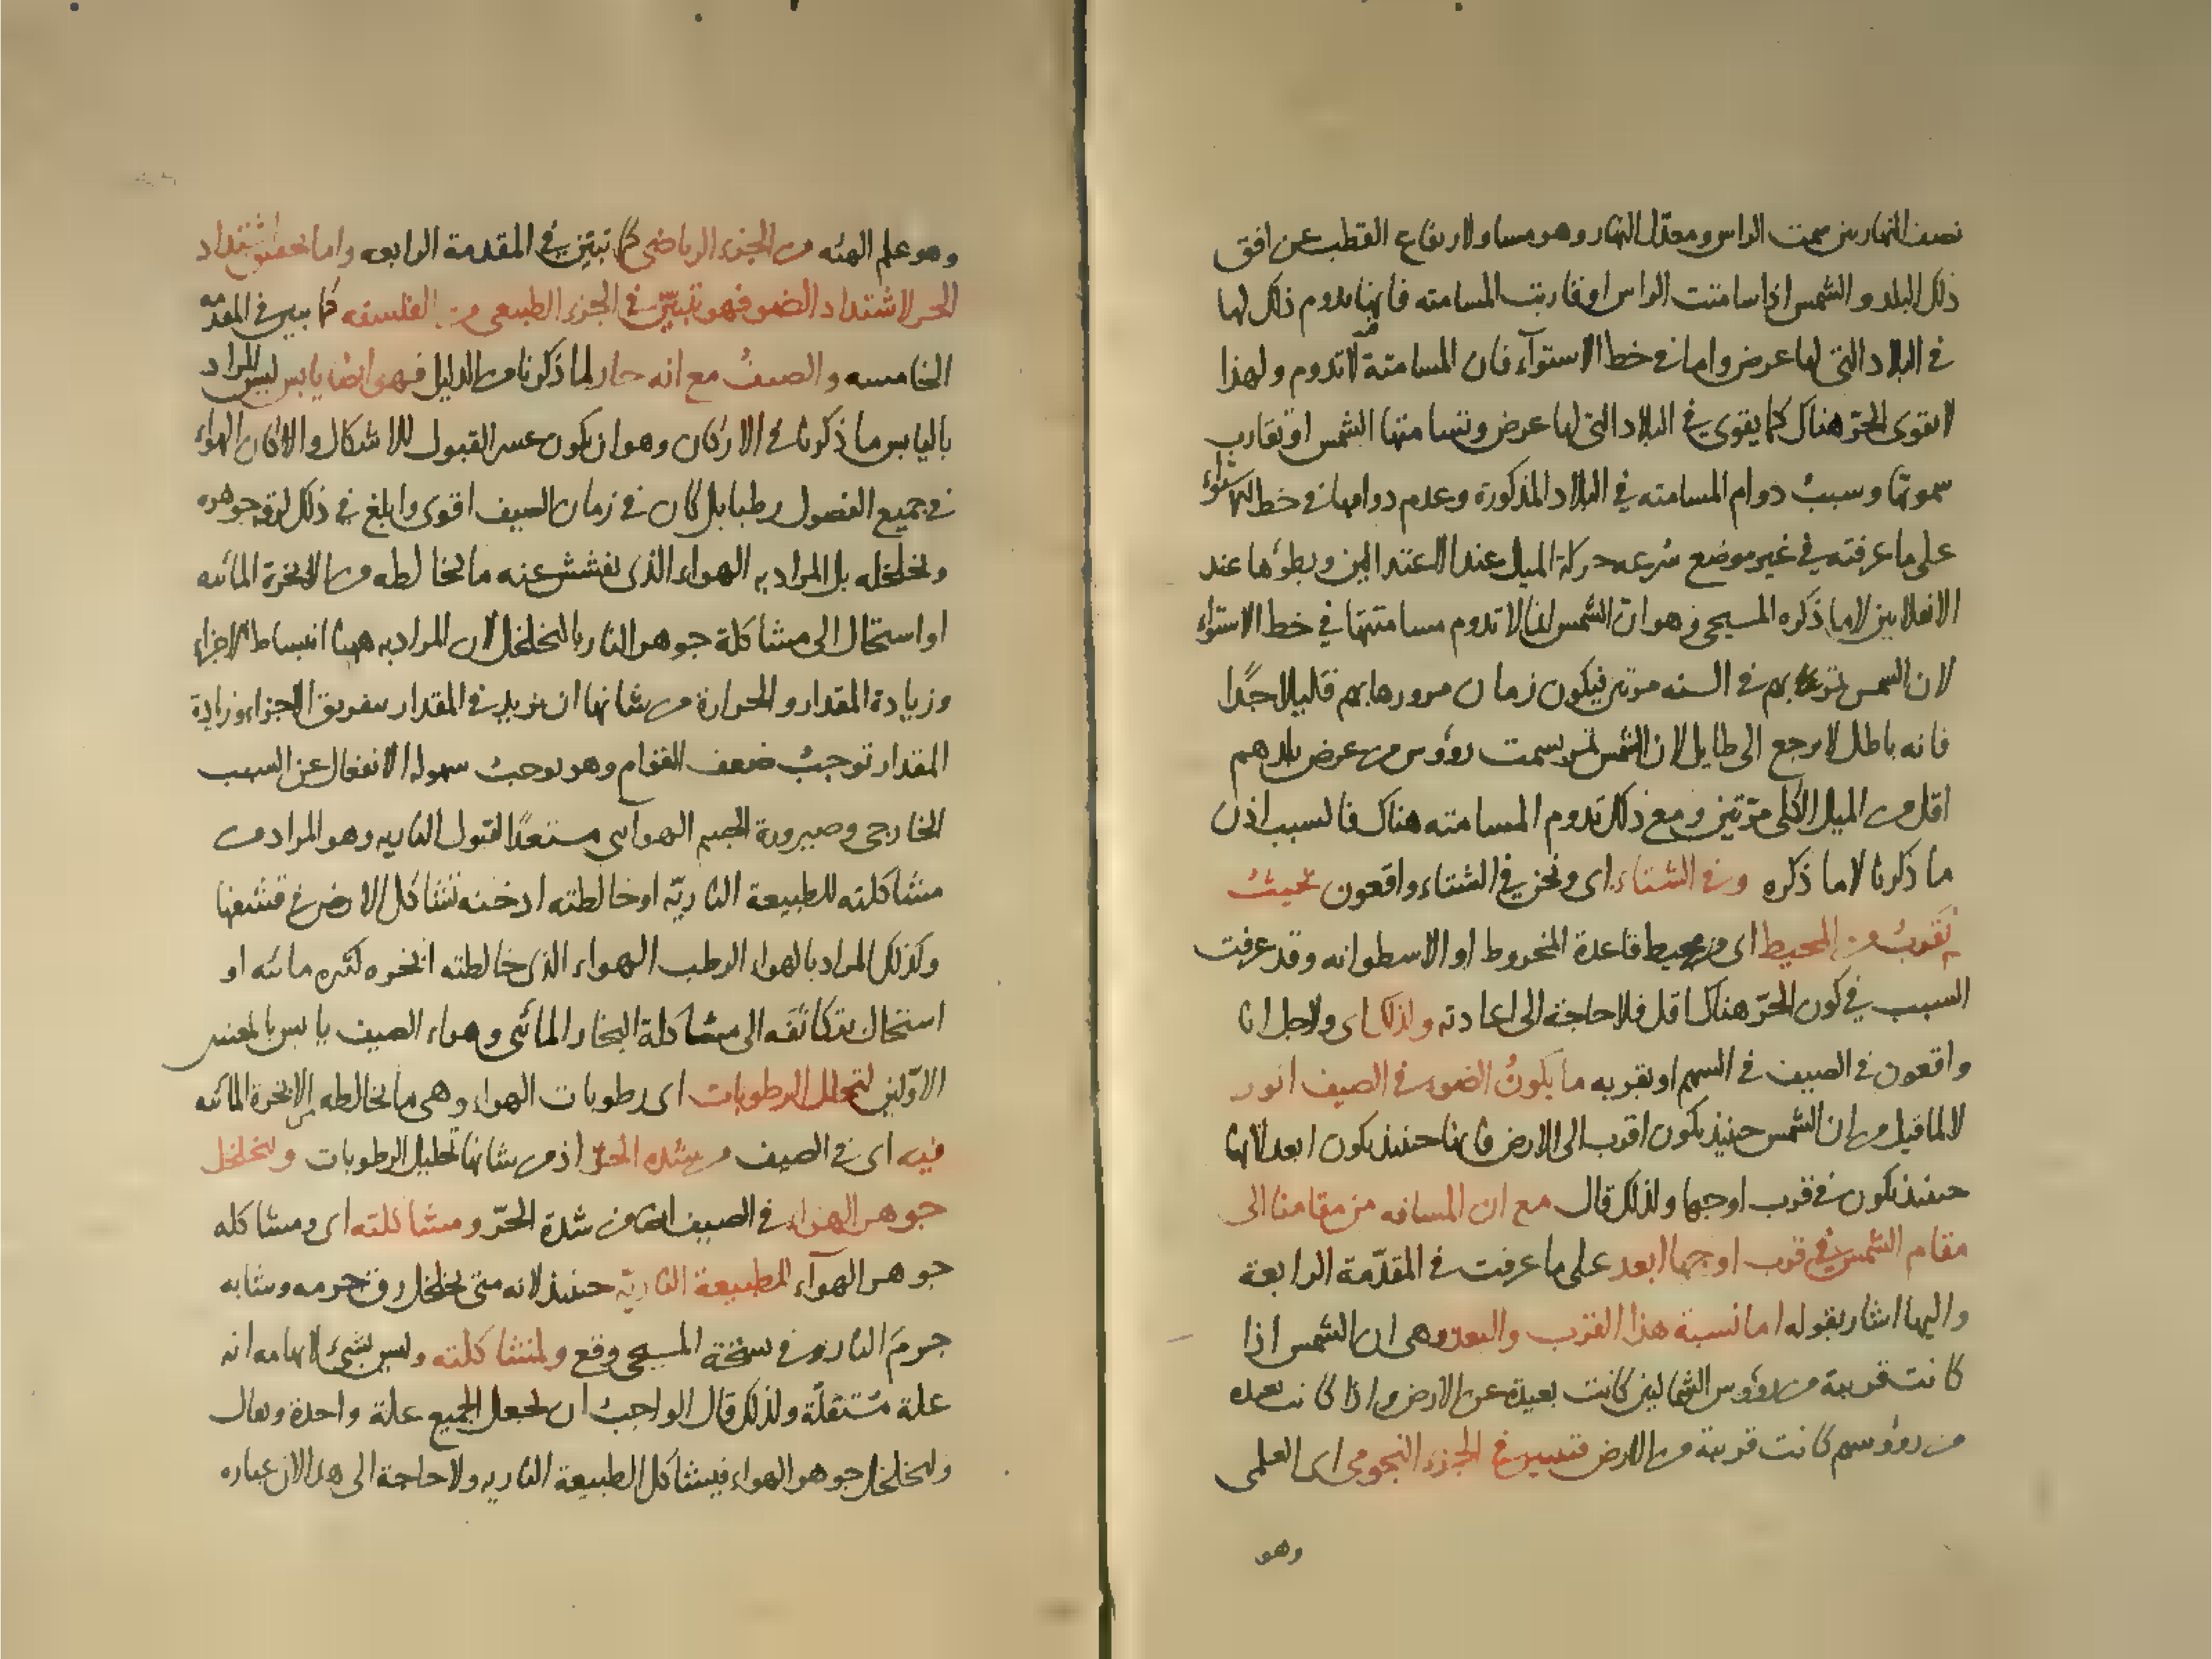 نصف النهار بين سمت الراس ومعدل النهار وهو مساو لارتفاع القطب عن افق
ذلك البلد والشمس اذا سامتت الراس او قاربت المسامته فانها يدوم ذلك لها
في البلاد التي لها عرض واما في خط الاستوآء فان المسامتة لا تدوم ولهذا
لا يقوى الحرّ هناك كما يقوى في البلاد التي لها عرض وتسامتها الشمس او تقارب
سموتها وسببُ دوام المسامته في البلاد المذكورة وعدم دوامها في خط الاستواء
على ما عرفته في غير موضع سُرعه حركة الميل عند الاعتدالين وبطؤها عند
الانقلابين لا ما ذكره المسيحي وهو ان الشمس انما لا تدوم مسامتتها في خط الاستواء
لان الشمس تمر بهم في السنه مرتين فيكون زمان مرورها بهم قليلا جدًا
فانه باطل لا يرجع الى طايل لان الشمس تمر بسمت رؤوس من عرض بلدهم
اقل من الميل الكلى مرّتين ومع ذلك تدوم المسامته هناك فالسبب اذن
ما ذكرنا لا ما ذكره وفي الشتاء اى ونحن في الشتاء واقعون بحيثُ
يَقربُ من المحيط اى من محيط قاعدة المخروط او الاسطوانه وقد عرفت
السبب في كون الحرّ هناك اقل فلا حاجة الى اعادته ولذلك اى ولاجل انا
واقعون في الصيف في السهم او بقربه ما يكونُ الضوء في الصيف انور
لا لما قيل من ان الشمس حينيذ يكون اقرب الى الارض فانها حينيذ يكون ابعد لانها
حينيذ يكون في قرب اوجها ولذلك قال مع ان المسافه من مقامنا الى
مقام الشمس في قرب اوجها ابعد على ما عرفت في المقدّمة الرابعة
واليها اشار بقوله اما نسبة هذا القرب والبعد وهى ان الشمس اذا
كانت قريبة من رؤوس الشماليين كانت بعيدة عن الارض واذا كانت بعيده
من رؤوسهم كانت قريبة من الارض فتبين في الجزء النجومى اى العلمى
وهو
وهو علم الهئه من الجزء الرياضى كما تبيّن في المقدمة الرابعه واما تحقيق اشتداد
الحر لاشتداد الضو فهو يتبيّن في الجزء الطبيعى من الفلسفه كما بين في المقدمه
الخامسه والصيفُ مع انه حار لما ذكرنا من الدليل فهو ايضا يابس ليس المراد
باليابس ما ذكرنا في الاركان وهو ان يكون عسر القبول للاشكال والا لكان الهواء
في جميع الفصول رطبا بل كان في زمان الصيف اقوى وابلغ في ذلك لرقه جوهره
وتخلخله بل المراد به الهواء الذى تفشش عنه ما يخالطه من الابخرة المائيه
او استحال الى مشاكلة جوهر النار بالتخلخل لان المراد به ههنا انبساط الاجزاء
وزيادة المقدار والحرارة من شانها ان تزيد في المقدار بتفريق الاجزاء وزيادة
المقدار توجبُ ضعف القوام وهو يوجبُ سهولة الانفعال عن السبب
الخارجى وصيرورة الجسم الهوائى مستعدًا لقبول الناريه وهو المراد من
مشاكلته للطبيعة الناريّه او خالطته ادخنه تشاكل الارض في قشفها
وكذلك المراد بالهواء الرطب الهواء الذى خالطته ابخره كثيره مائيه او
استحال بتكاثفه الى مشاكلة البخار المائى وهواء الصيف يابس بالمعنيين
الاوّلين لتحلل الرطوبات اى رطوبات الهواء وهى ما يخالطه من الابخرة المائيه
فيه اى في الصيف من شده الحرّ اذ من شانها تحليل الرطوبات ولتخلخل
جوهر الهواء في الصيف ايضا من شدة الحرّ ومشاكلته اى ومشاكله
جوهر الهوآء للطبيعة الناريّه حينيذ لانه متى تخلخل رق جرمه وشابه
جرمَ النار وفي نسخة المسيحى وقع ولمشاكلته وليس بشىء لايهامه انه
علة مُستقلّة ولذلك قال الواجبُ ان تجعل الجميع علة واحدة ويقال
ولتخلخل جوهر الهواء فيشاكل الطبيعة الناريه ولا حاجة الى هذا لان عباره